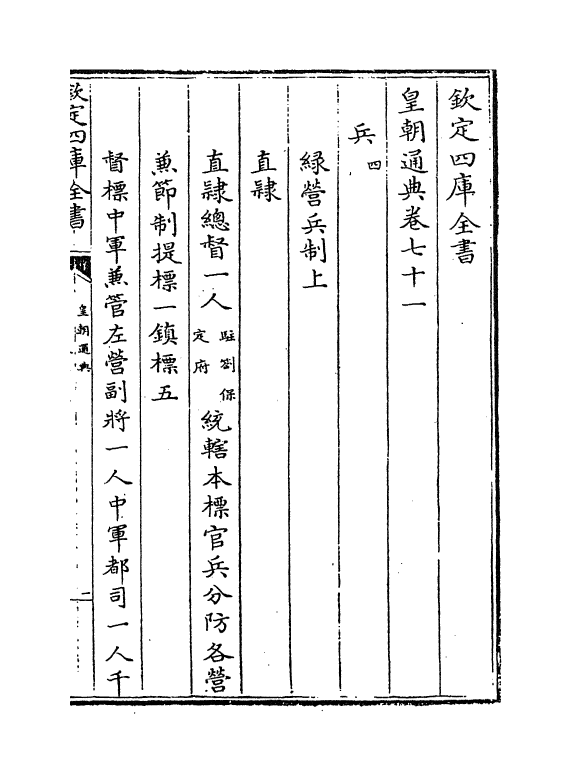 欽定四庫全書
皇朝通典卷七十一
兵四
緑營兵制上
直𨽻
直𨽻總督一人駐劄保定府統轄本標官兵分防各營
兼節制提標一鎮標五
督標中軍兼管左營副將一人中軍都司一人千
欽定四庫全書
皇朝通典